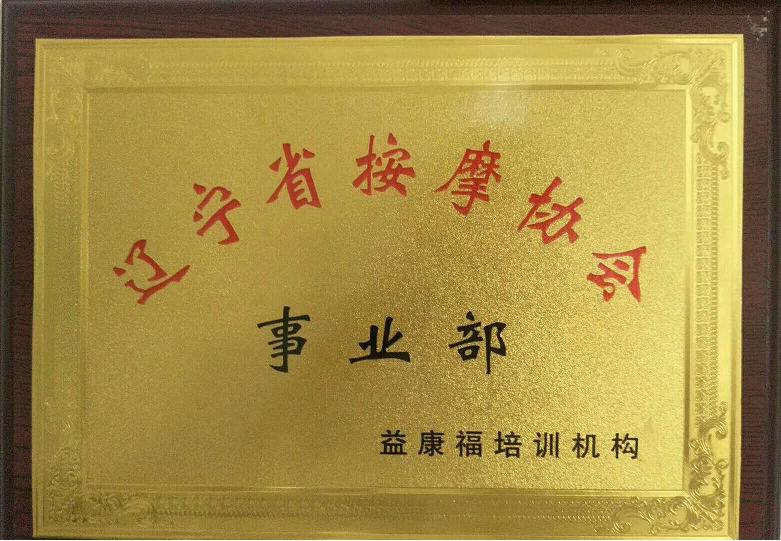 辽宁省按摩协会
事业部
益康福培训机构